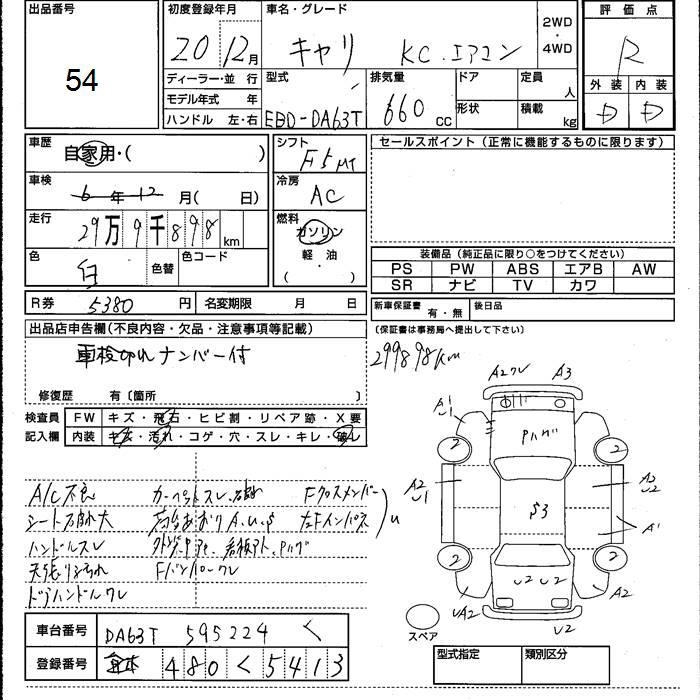 出品番号
54
初度登録年月
20年12月
車名・グレード
キャリ KC.エアコン
2WD・4WD
評価点
R
外装 内装
D D
ディーラー・並行
モデル年式 年
ハンドル 左・右
型式
EBD-DA63T
排気量
660 CC
ドア
形状
定員 人
積載 kg
車歴
自家用・( )
シフト
F5MT
セールスポイント(正常に機能するものに限ります)
車検
6年12月( 日)
冷房
AC
走行
29万9千898km
燃料
ガソリン
軽・油
( )
色
白
色替
色コード
装備品(純正品に限り○をつけてください)
PS PW ABS エアB AW
SR ナビ TV カワ
R券 5380円
名変期限 月 日
新車保証書 有・無
後日品
(保証書は事務局へ提出して下さい)
出品店申告欄(不良内容・欠品・注意事項等記載)
車検切れナンバー付
299898km
修復歴 有〔箇所 〕
検査員記入欄
FW キズ・飛石・ヒビ割・リペア跡・X要
内装 キズ・汚れ・コゲ・穴・スレ・キレ・破レ
A2クレ A3
Pハゲ
2 2
A2 U1
A2 U2
S3
A1
2 2
U2 U2
UA2
A2
U2
スペア
A/C不良 Fクロスメンバー
シート
ハンドルスレ
天張り
Fバンパークレ
ドアハンドルクレ
車台番号 DA63T 595224
登録番号 480 く 5413
型式指定 類別区分